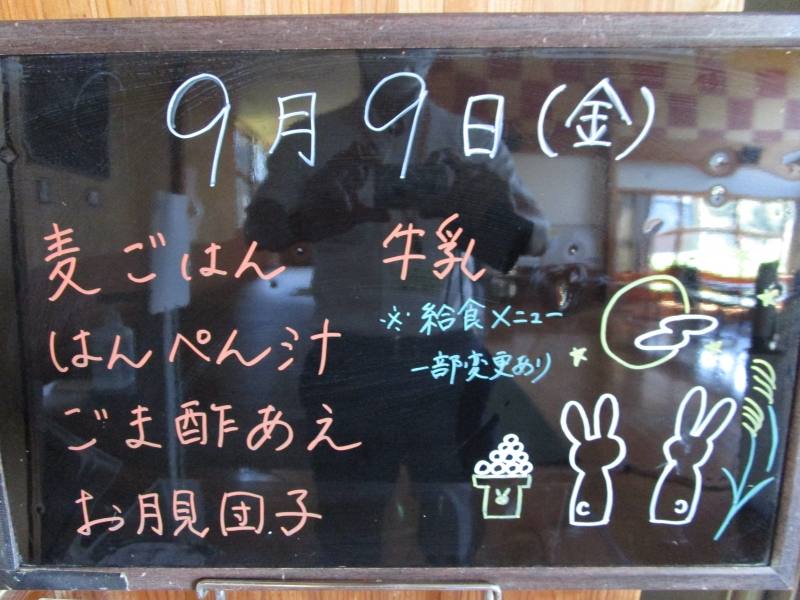 9月9日(金)
麦ごはん
はんぺん汁
ごま酢あえ
お月見団子
牛乳
※給食メニュー
一部変更あり